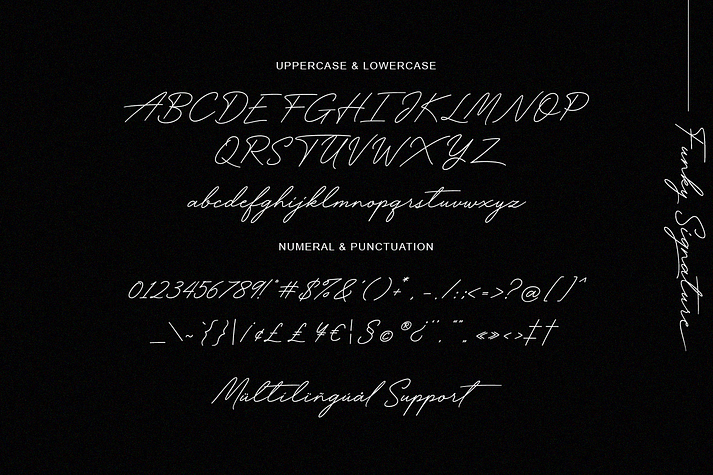 UPPERCASE & LOWERCASE
ABCDEFGHIJKLMNOP
QRSTUVWXYZ
abcdefghijklmnopqrstuvwxyz
NUMERAL & PUNCTUATION
0123456789!"#$%&'()+*,-./:;<=>?@[]^
_\~{}|/¢£₤¥€¦§©®¿¨.˝„«»‹›‡†
Múltilingúál Support
Funky Signature